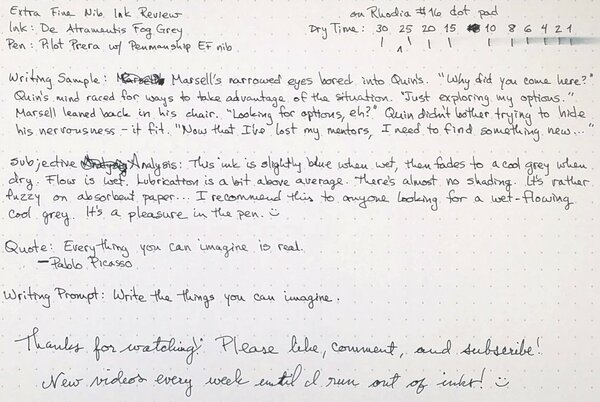 Extra Fine Nib Ink Review on Rhodia #16 dot pad
Ink: De Atramentis Fog Grey Dry Time: 30 25 20 15 10 8 6 4 2 1
Pen: Pilot Prera w/ Penmanship EF nib
Writing Sample: Marsell's narrowed eyes bored into Quin's. "Why did you come here?"
Quin's mind raced for ways to take advantage of the situation. "Just exploring my options."
Marsell leaned back in his chair. "Looking for options, eh?" Quin didn't bother trying to hide
his nervousness - it fit. "Now that I've lost my mentors, I need to find something new..."
Subjective Analysis: This ink is slightly blue when wet, then fades to a cool grey when
dry. Flow is wet. Lubrication is a bit above average. There's almost no shading. It's rather
fuzzy on absorbent paper... I recommend this to anyone looking for a wet-flowing
cool grey. It's a pleasure in the pen.
Quote: Everything you can imagine is real.
- Pablo Picasso
Writing Prompt: Write the things you can imagine.
Thanks for watching! Please like, comment, and subscribe!
New videos every week until I run out of inks!